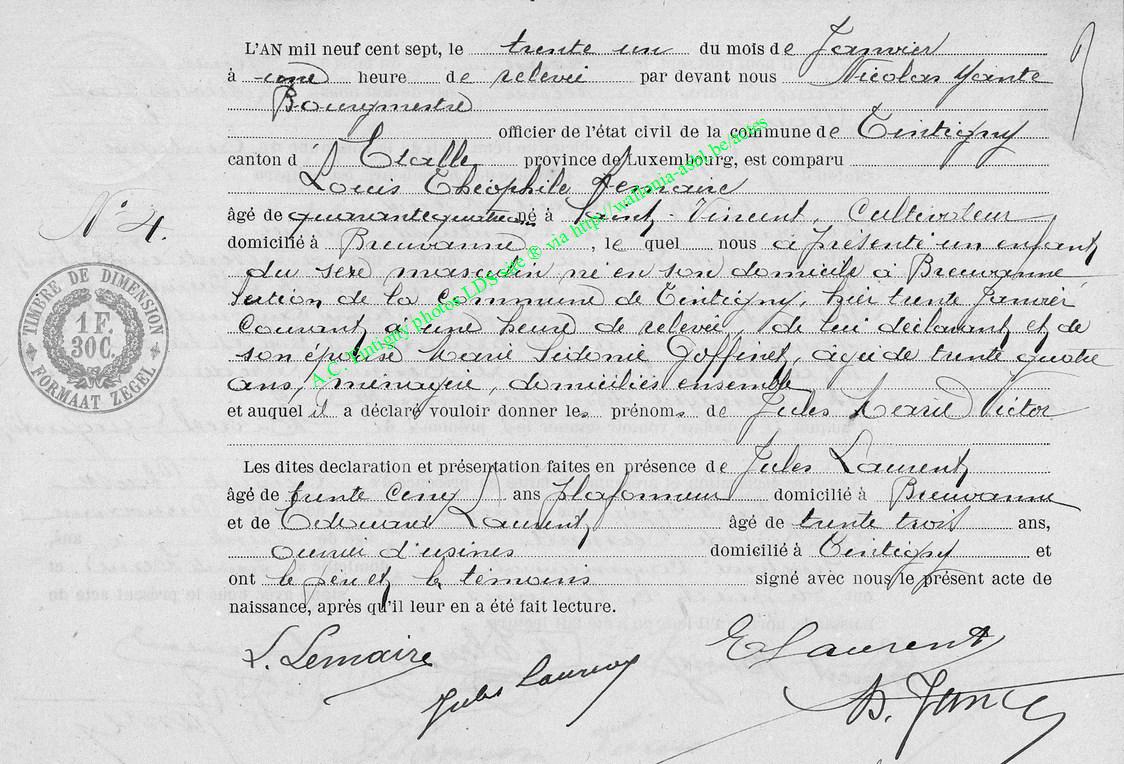 L'AN mil neuf cent sept, le trente un du mois de Janvier
à une heure de relevée par devant nous Nicolas
Bourgmestre
officier de l'état civil de la commune de Tintigny
canton d'Etalle province de Luxembourg, est comparu
Louis Théophile Lemaire
N° 4.
âgé de quarante quatre ans né à Saint-Vincent, Cultivateur
domicilié à Breuvanne, le quel nous a présenté un enfant
du sexe masculin né en son domicile à Breuvanne
section de la commune de Tintigny, hier trente Janvier
courant à une heure de relevée, de lui déclarant et de
son épouse Marie Sidonie Goffinet, agée de trente quatre
ans, ménagère, domiciliés ensemble
et auquel il a déclaré vouloir donner les prénoms de Jules Marie Victor
Les dites declaration et présentation faites en présence de Jules Laurent
âgé de trente cinq ans plafonneur domicilié à Breuvanne
et de Edouard Laurent âgé de trente trois ans,
ouvrier d'usines domicilié à Tintigny et
ont le père et les témoins signé avec nous le présent acte de
naissance, après qu'il leur en a été fait lecture.
L. Lemaire
Jules Laurent
E Laurent
TIMBRE DE DIMENSION
1 F.
30 C.
FORMAAT ZEGEL
A.C. Tintigny photos LDs site ® via http://wallonia-asbl.be/actes